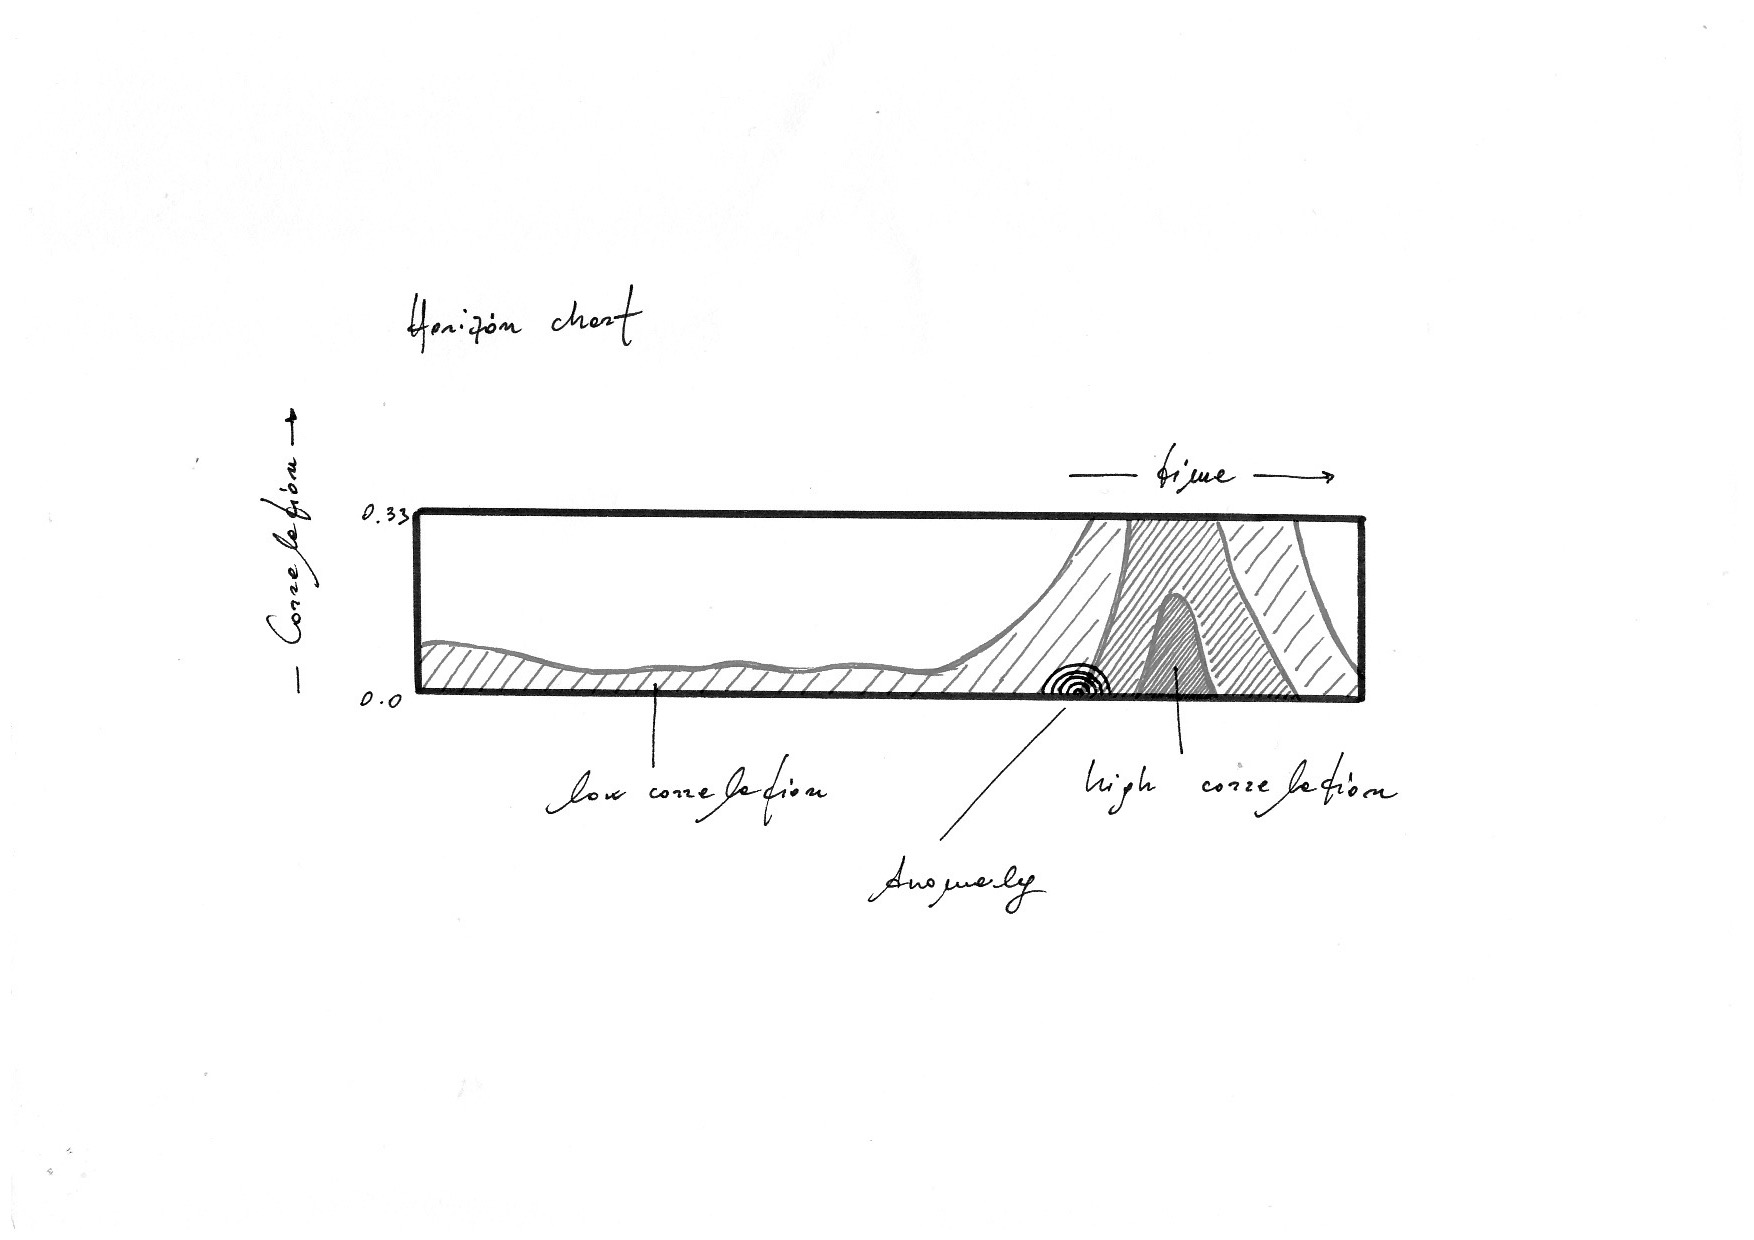 Horizon chart
— Correlation →
— time →
0.33
0.0
low correlation
high correlation
Anomaly